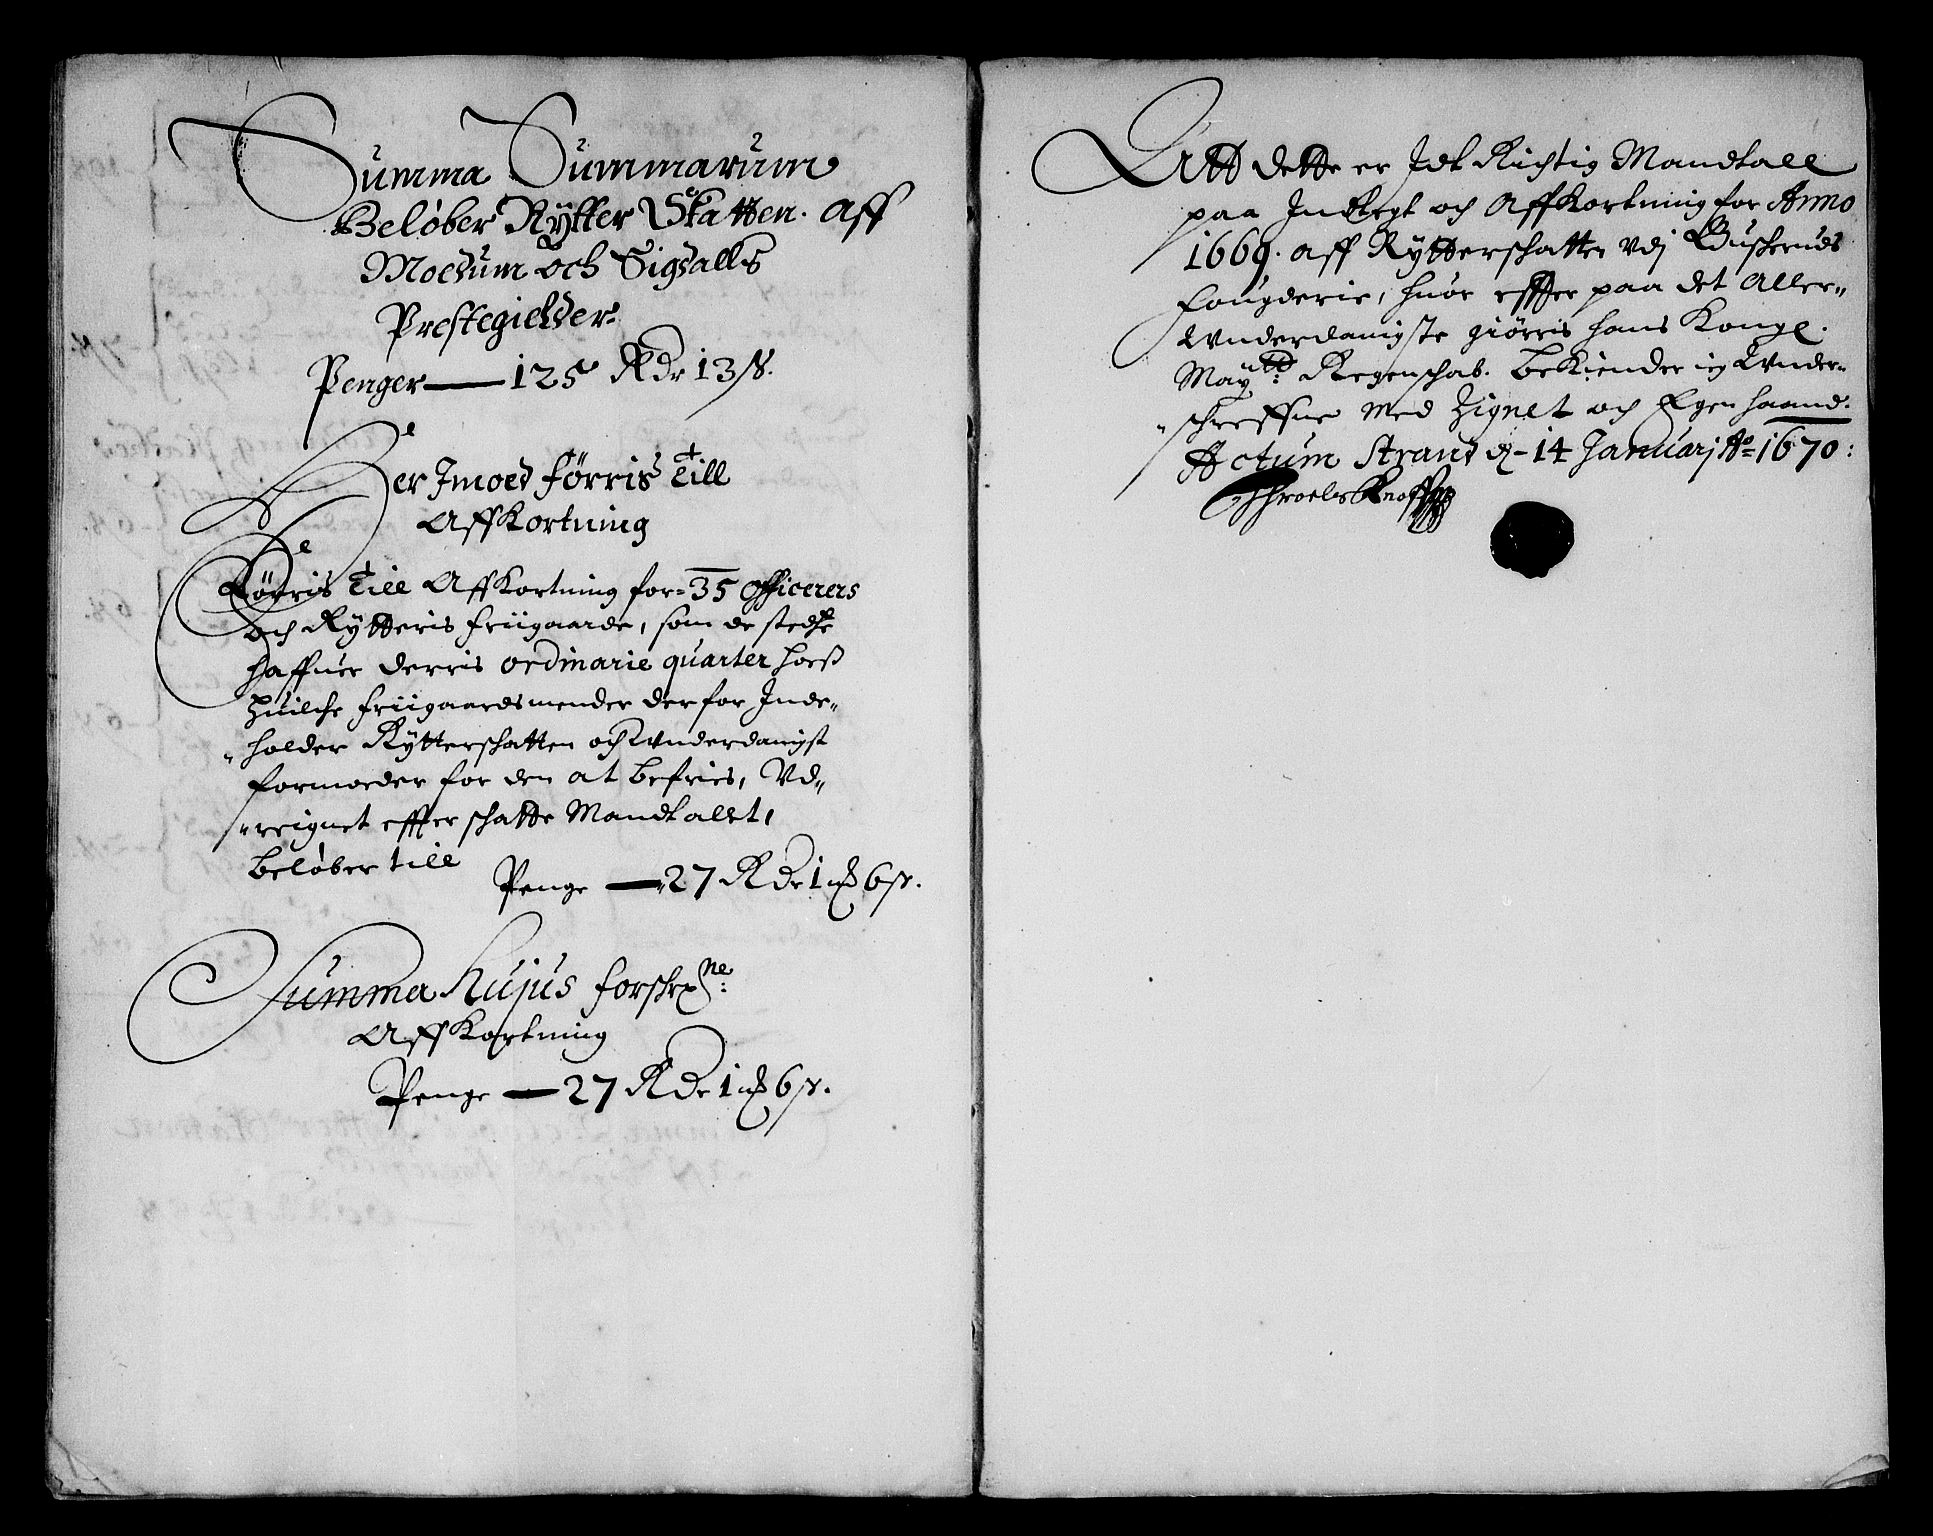 Summa Summarum
Beløber Rytter Skatten. aff
Modum och Sigdalls
Prestegielder
Penger — 125 Rdr 13 s.
Her Imoed førris Till
AffKortning
Førris Till AffKortning for 35 Officerers
och Rytteris friigaarde, som de stedtze
haffuer derris ordinarie quarter hoeß
huilche friigaardsmender derfor Inde„
„holder Rytterschatten och Vnderdanigst
formoder for den at befries, Vd„
„reignet effter schatte Mandtallet,
Beløber till
Penge — 27 Rdr 1 mk 6 s.
Summa hujus forskr:ne
AffKortning
Penge — 27 Rdr 1 mk 6 s.
Att dette er Idt Richtig Mandtall
paa Indtegt och AffKortning for Anno
1669. aff Rytterschatten vdj Buskeruds
fougderie, huor effter paa det Aller„
Vnderdanigste giörris hans Kongl.
May:tt Regenschab. BeKiender ieg Vnder„
„schreffne med Zignet och Egen haand.
Actum Strand d. 14 Januarj Ao 1670: